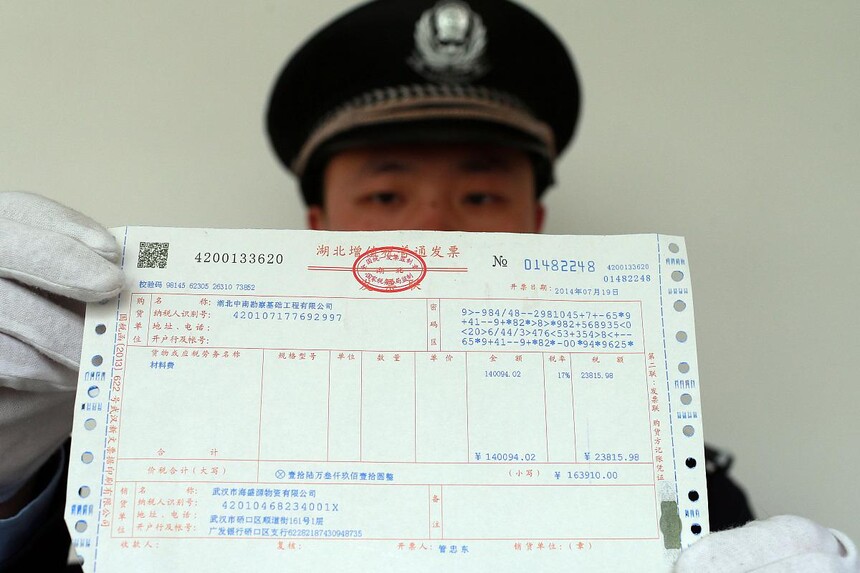 4200133620
湖北增值税普通发票
全国统一发票监制章
湖北
国家税务局监制
№ 01482248
4200133620
01482248
校验码 98145 62305 26310 73852
开票日期: 2014年07月19日
购货单位
名 称: 湖北中南勘察基础工程有限公司
纳税人识别号: 420107177692997
地址、电话:
开户行及帐号:
密码区
9>-984/48--2981045+7+-65*9
+41--9+*82*>8>*982+568935<0
<20>6/44/3>476<53+354>8<+--
65*9+41--9+*82*-00*94*9625*
货物或应税劳务名称 规格型号 单位 数量 单价 金额 税率 税额
材料费 140094.02 17% 23815.98
合计 ¥140094.02 ¥23815.98
价税合计(大写) ⊗壹拾陆万叁仟玖佰壹拾圆整 (小写) ¥163910.00
销货单位
名 称: 武汉市海盛源物资有限公司
纳税人识别号: 42010468234001X
地址、电话: 武汉市硚口区顺道街161号1层
开户行及帐号: 广发银行硚口区支行6238218743094873​5
备注
收款人: 复核: 开票人: 管忠东 销货单位:(章)
第二联:发票联 购货方记账凭证